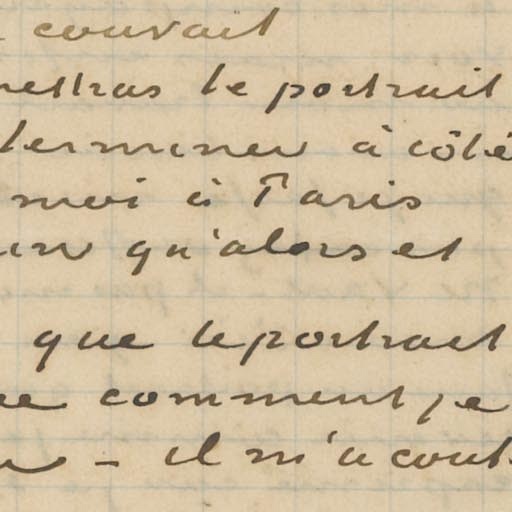 couvait
mettras le portrait
terminer à côté
moi à Paris
qu'alors et
que le portrait
comment je
- il m'a cout